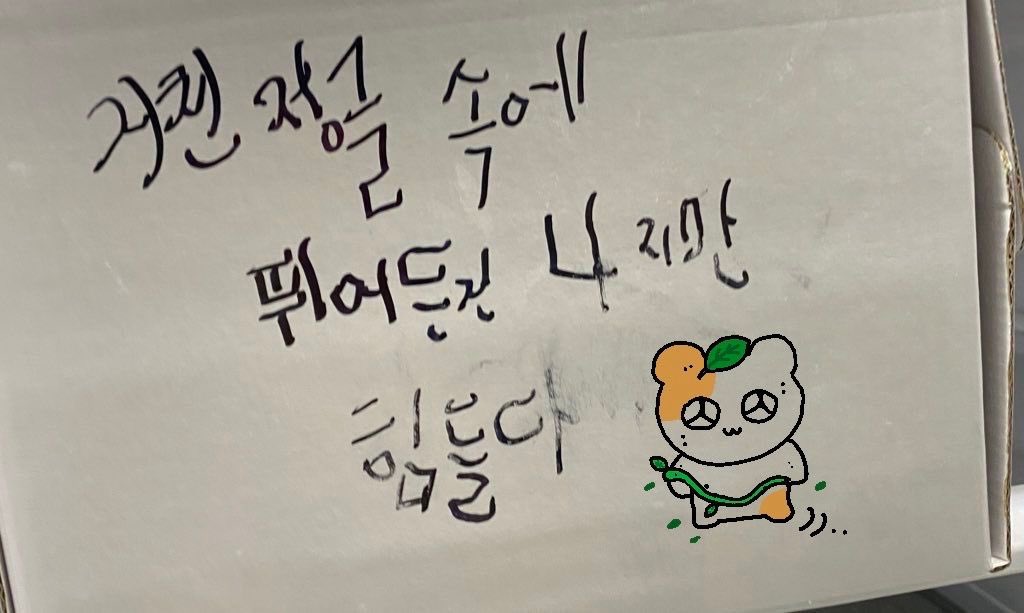 거친 정글 속에
뛰어든건 나지만
힘들다